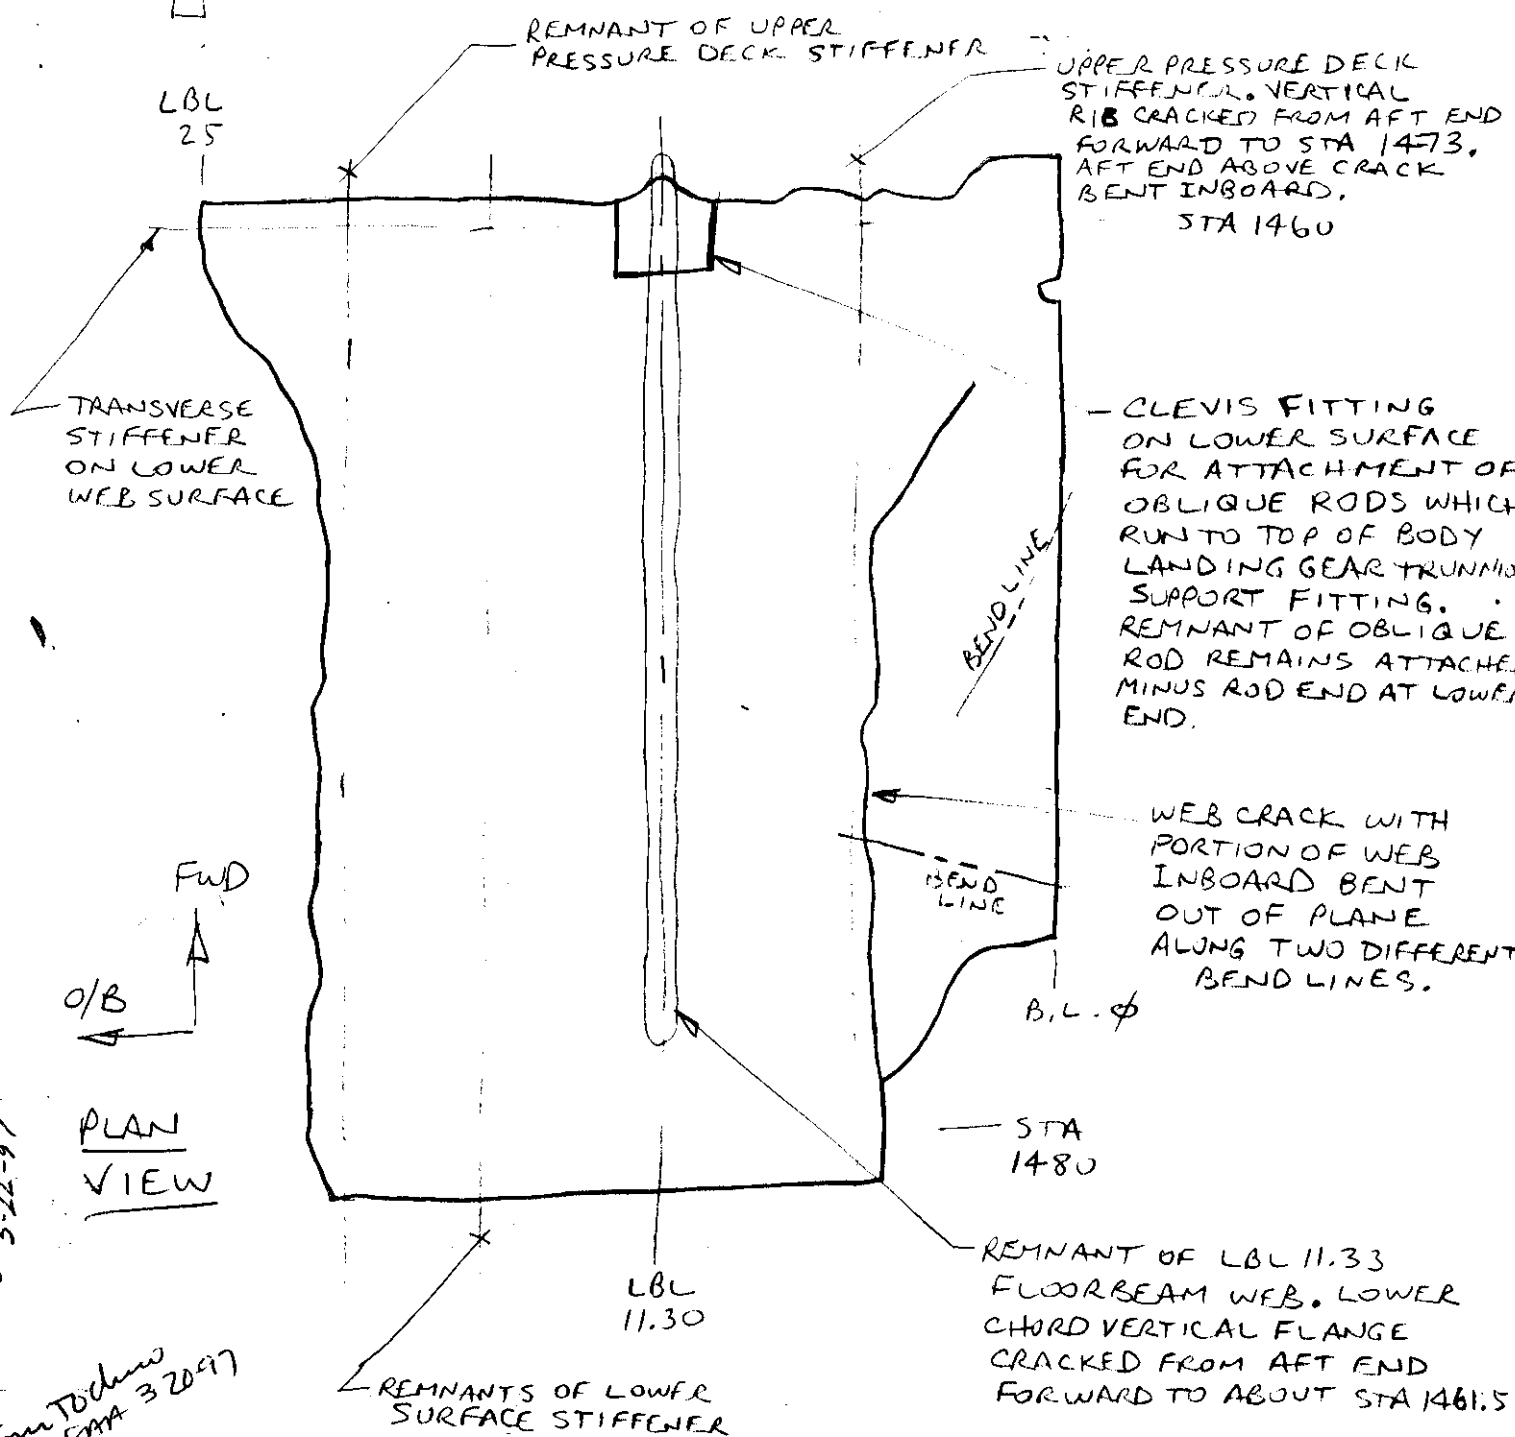 REMNANT OF UPPER
PRESSURE DECK STIFFENER
UPPER PRESSURE DECK
STIFFENER. VERTICAL
RIB CRACKED FROM AFT END
FORWARD TO STA 1473.
AFT END ABOVE CRACK
BENT INBOARD.
STA 1460
LBL
25
TRANSVERSE
STIFFENER
ON LOWER
WEB SURFACE
CLEVIS FITTING
ON LOWER SURFACE
FOR ATTACHMENT OF
OBLIQUE RODS WHICH
RUN TO TOP OF BODY
LANDING GEAR TRUNNIO
SUPPORT FITTING.
REMNANT OF OBLIQUE
ROD REMAINS ATTACHE
MINUS ROD END AT LOWER
END.
BEND LINE
WEB CRACK WITH
PORTION OF WEB
INBOARD BENT
OUT OF PLANE
ALONG TWO DIFFERENT
BEND LINES.
BEND
LINE
FWD
O/B
B.L. ϕ
PLAN
VIEW
STA
1480
LBL
11.30
REMNANT OF LBL 11.33
FLOORBEAM WEB. LOWER
CHORD VERTICAL FLANGE
CRACKED FROM AFT END
FORWARD TO ABOUT STA 1461.5
REMNANTS OF LOWER
SURFACE STIFFENER
3-22-97
FAA 3 20 97